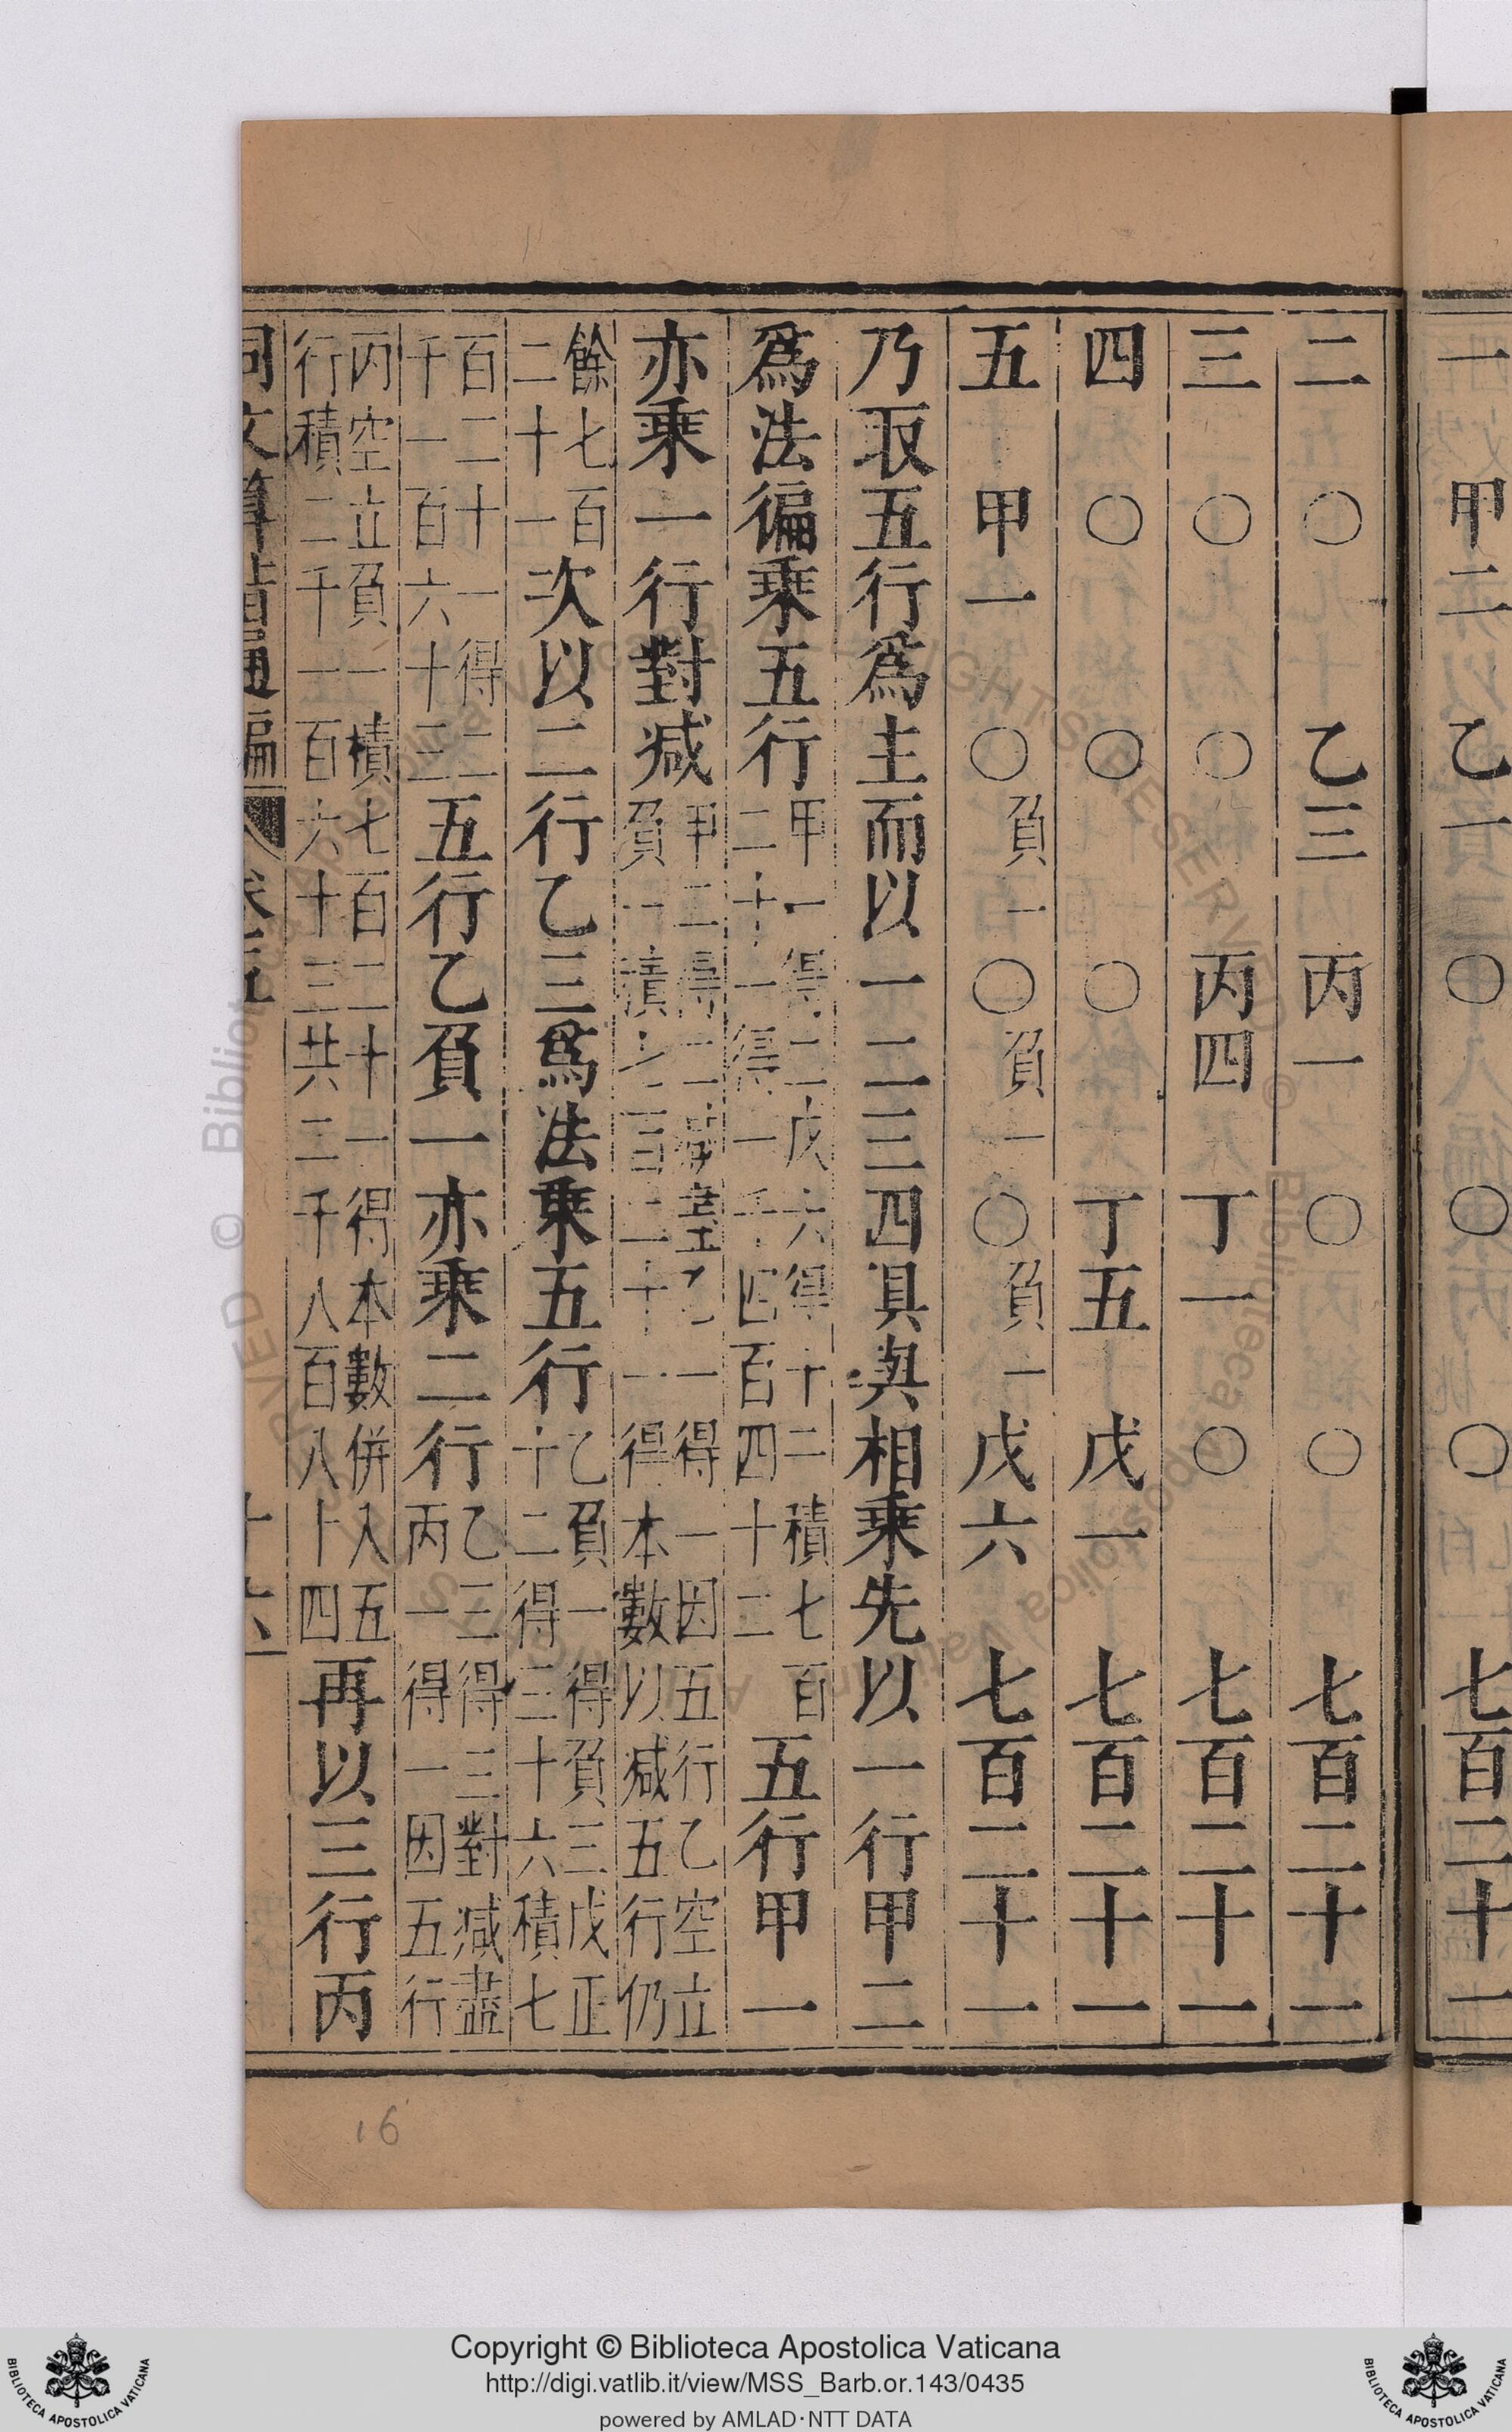 一 甲二 乙一 〇 〇 〇 七百二十一
二 〇 乙三 丙一 〇 〇 七百二十一
三 〇 〇 丙四 丁一 〇 七百二十一
四 〇 〇 〇 丁五 戊一 七百二十一
五 甲一 〇負一 〇負一 〇負一 戊六 七百二十一
乃取五行爲主而以一二三四具與相乘先以一行甲二
爲法徧乘五行甲一得二戊六得十二積七百二十一得一千四百四十二五行甲一
亦乘一行對減甲二得二減盡乙一得一因五行乙空立負一積七百二十一得本數以減五行仍
餘七百二十一次以二行乙三爲法乘五行乙負一得負三戊正十二得三十六積七
百二十一得二千一百六十三五行乙負一亦乘二行乙三得三對減盡丙一得一因五行
丙空立負一積七百二十一得本數併入五行積二千一百六十三共二千八百八十四再以三行丙
同文算指通編 卷五 十六
16
Copyright © Biblioteca Apostolica Vaticana
http://digi.vatlib.it/view/MSS_Barb.or.143/0435
powered by AMLAD·NTT DATA
BIBLIOTECA APOSTOLICA VATICANA
BIBLIOTECA APOSTOLICA VATICANA